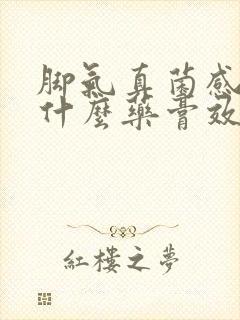 脚氣真菌感
什麼藥膏效
紅樓之夢